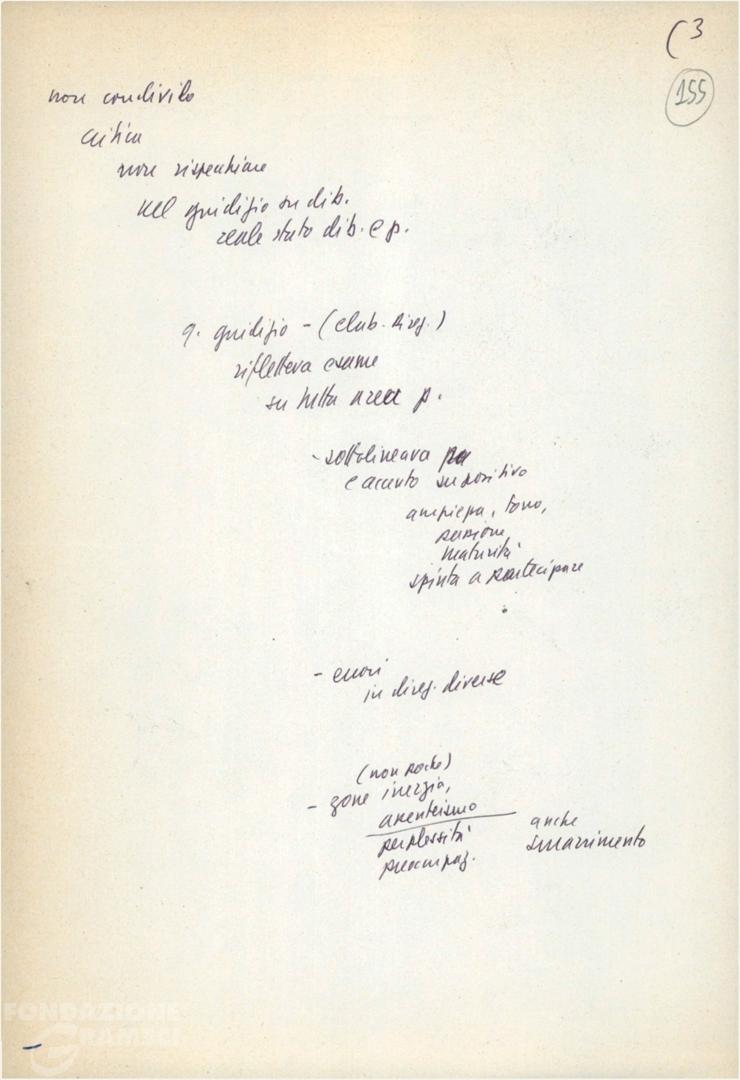 (3
155
non condivido
critica
non rispecchiare
nel giudizio su dib.
reale stato dib. e p.
q. giudizio - (elab. Direz.)
rifletteva esame
su tutta area p.
- sottolineava
e accento su positivo
ampiezza, tono,
passione
maturità
spinta a partecipare
- errori
in direz. diverse
(non poche)
- zone inerzia,
assenteismo
perplessità
preoccupaz.
anche
smarrimento
FONDAZIONE
GRAMSCI